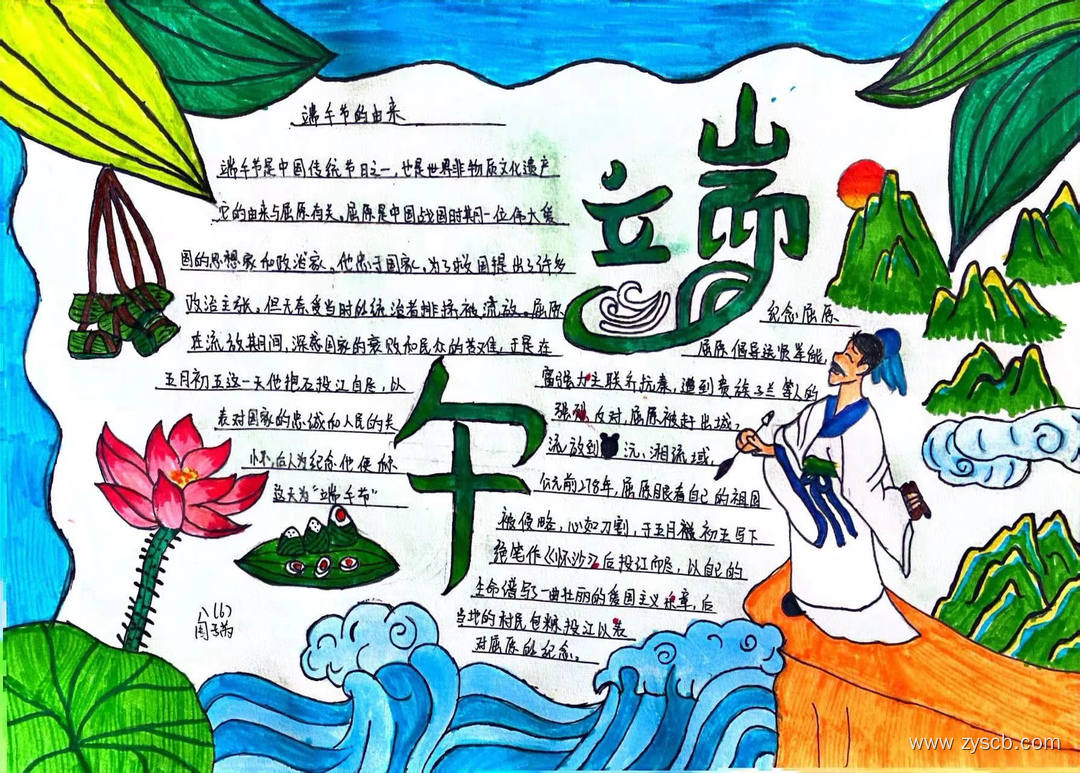 端午节的由来
端午节是中国传统节日之一,也是世界非物质文化遗产
它的由来与屈原有关。屈原是中国战国时期一位伟大爱
国的思想家和政治家。他忠于国家,为了救国提出了许多
政治主张,但无奈受当时的统治者排挤被流放。屈原
在流放期间,深感国家的衰败和民众的苦难,于是在
五月初五这一天他抱石投江自尽,以
表对国家的忠诚和人民的关
怀,后人为纪念他便称
这天为“端午节”
端
午
纪念屈原
屈原倡导选贤举能,
富强力主联齐抗秦,遭到贵族子兰等人的
强烈反对,屈原被赶出城,
流放到 沅、湘流域,
公元前278年,屈原眼看自己的祖国
被侵略,心如刀割,于五月 初五写下
绝笔作《怀沙》后投江而尽,以自己的
生命谱写了一曲壮丽的爱国主义 章,后
当地的村民包粽投江以表
对屈原的纪念。
八(6)
www.zyscb.com